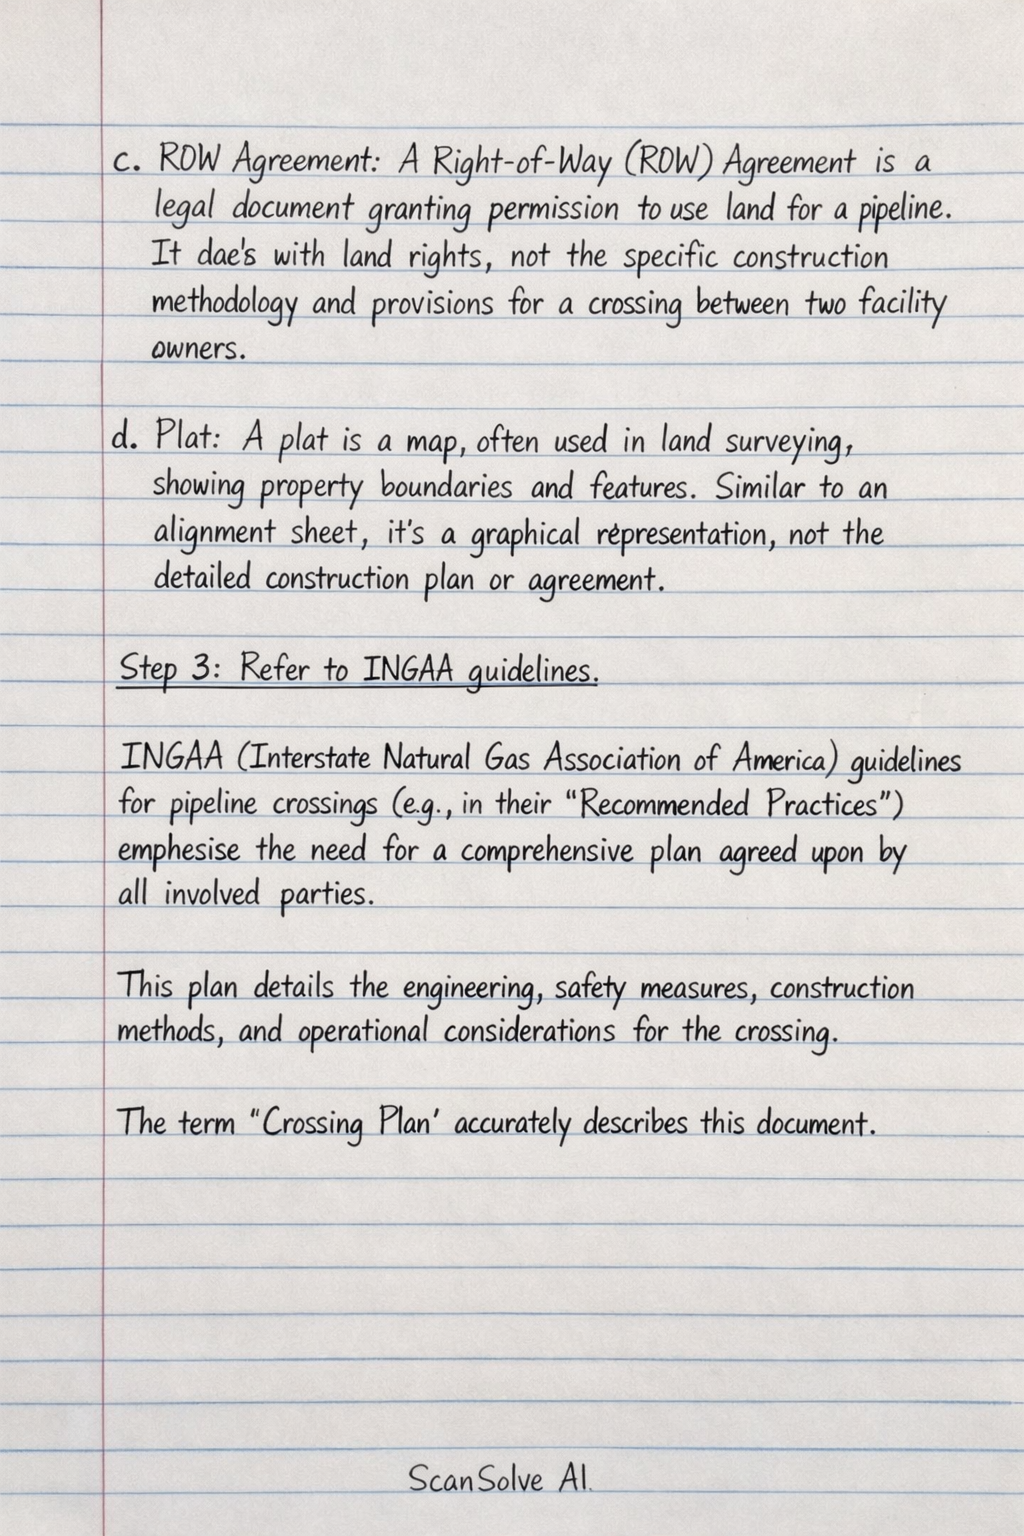 c. ROW Agreement: A Right-of-Way (ROW) Agreement is a
legal document granting permission to use land for a pipeline.
It dae's with land rights, not the specific construction
methodology and provisions for a crossing between two facility
owners.
d. Plat: A plat is a map, often used in land surveying,
showing property boundaries and features. Similar to an
alignment sheet, it's a graphical representation, not the
detailed construction plan or agreement.
Step 3: Refer to INGAA guidelines.
INGAA (Interstate Natural Gas Association of America) guidelines
for pipeline crossings (e.g., in their "Recommended Practices")
emphesise the need for a comprehensive plan agreed upon by
all involved parties.
This plan details the engineering, safety measures, construction
methods, and operational considerations for the crossing.
The term "Crossing Plan' accurately describes this document.
ScanSolve AI.